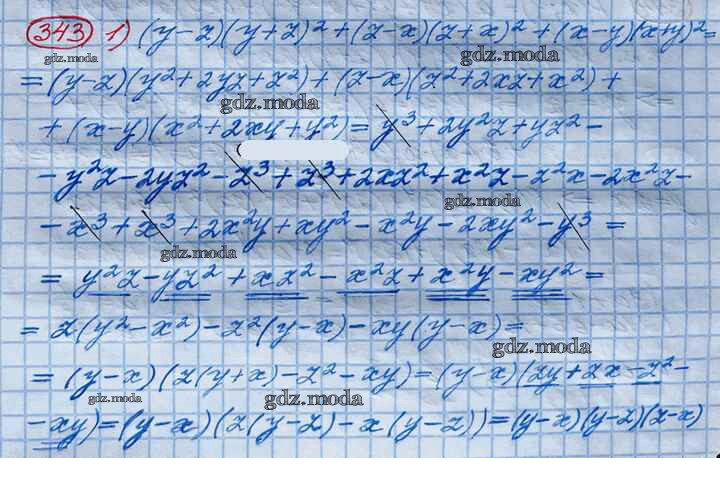 343 1) (y-z)(y+z)²+(z-x)(z+x)²+(x-y)(x+y)²=
gdz.moda
=(y-z)(y²+2yz+z²)+(z-x)(z²+2xz+x²)+
gdz.moda
+(x-y)(x²+2xy+y²)=y³+2y²z+yz²-
-y²z-2yz²-z³+z³+2xz²+x²z-z²x-2x²z-
gdz.moda
-x³+x³+2x²y+xy²-x²y-2xy²-y³=
gdz.moda
=y²z-yz²+xz²-x²z+x²y-xy²=
=z(y²-x²)-z²(y-x)-xy(y-x)=
gdz.moda
=(y-x)(z(y+x)-z²-xy)=(y-x)(zy+zx-z²-
gdz.moda gdz.moda
-xy)=(y-x)(z(y-z)-x(y-z))=(y-x)(y-z)(z-x)